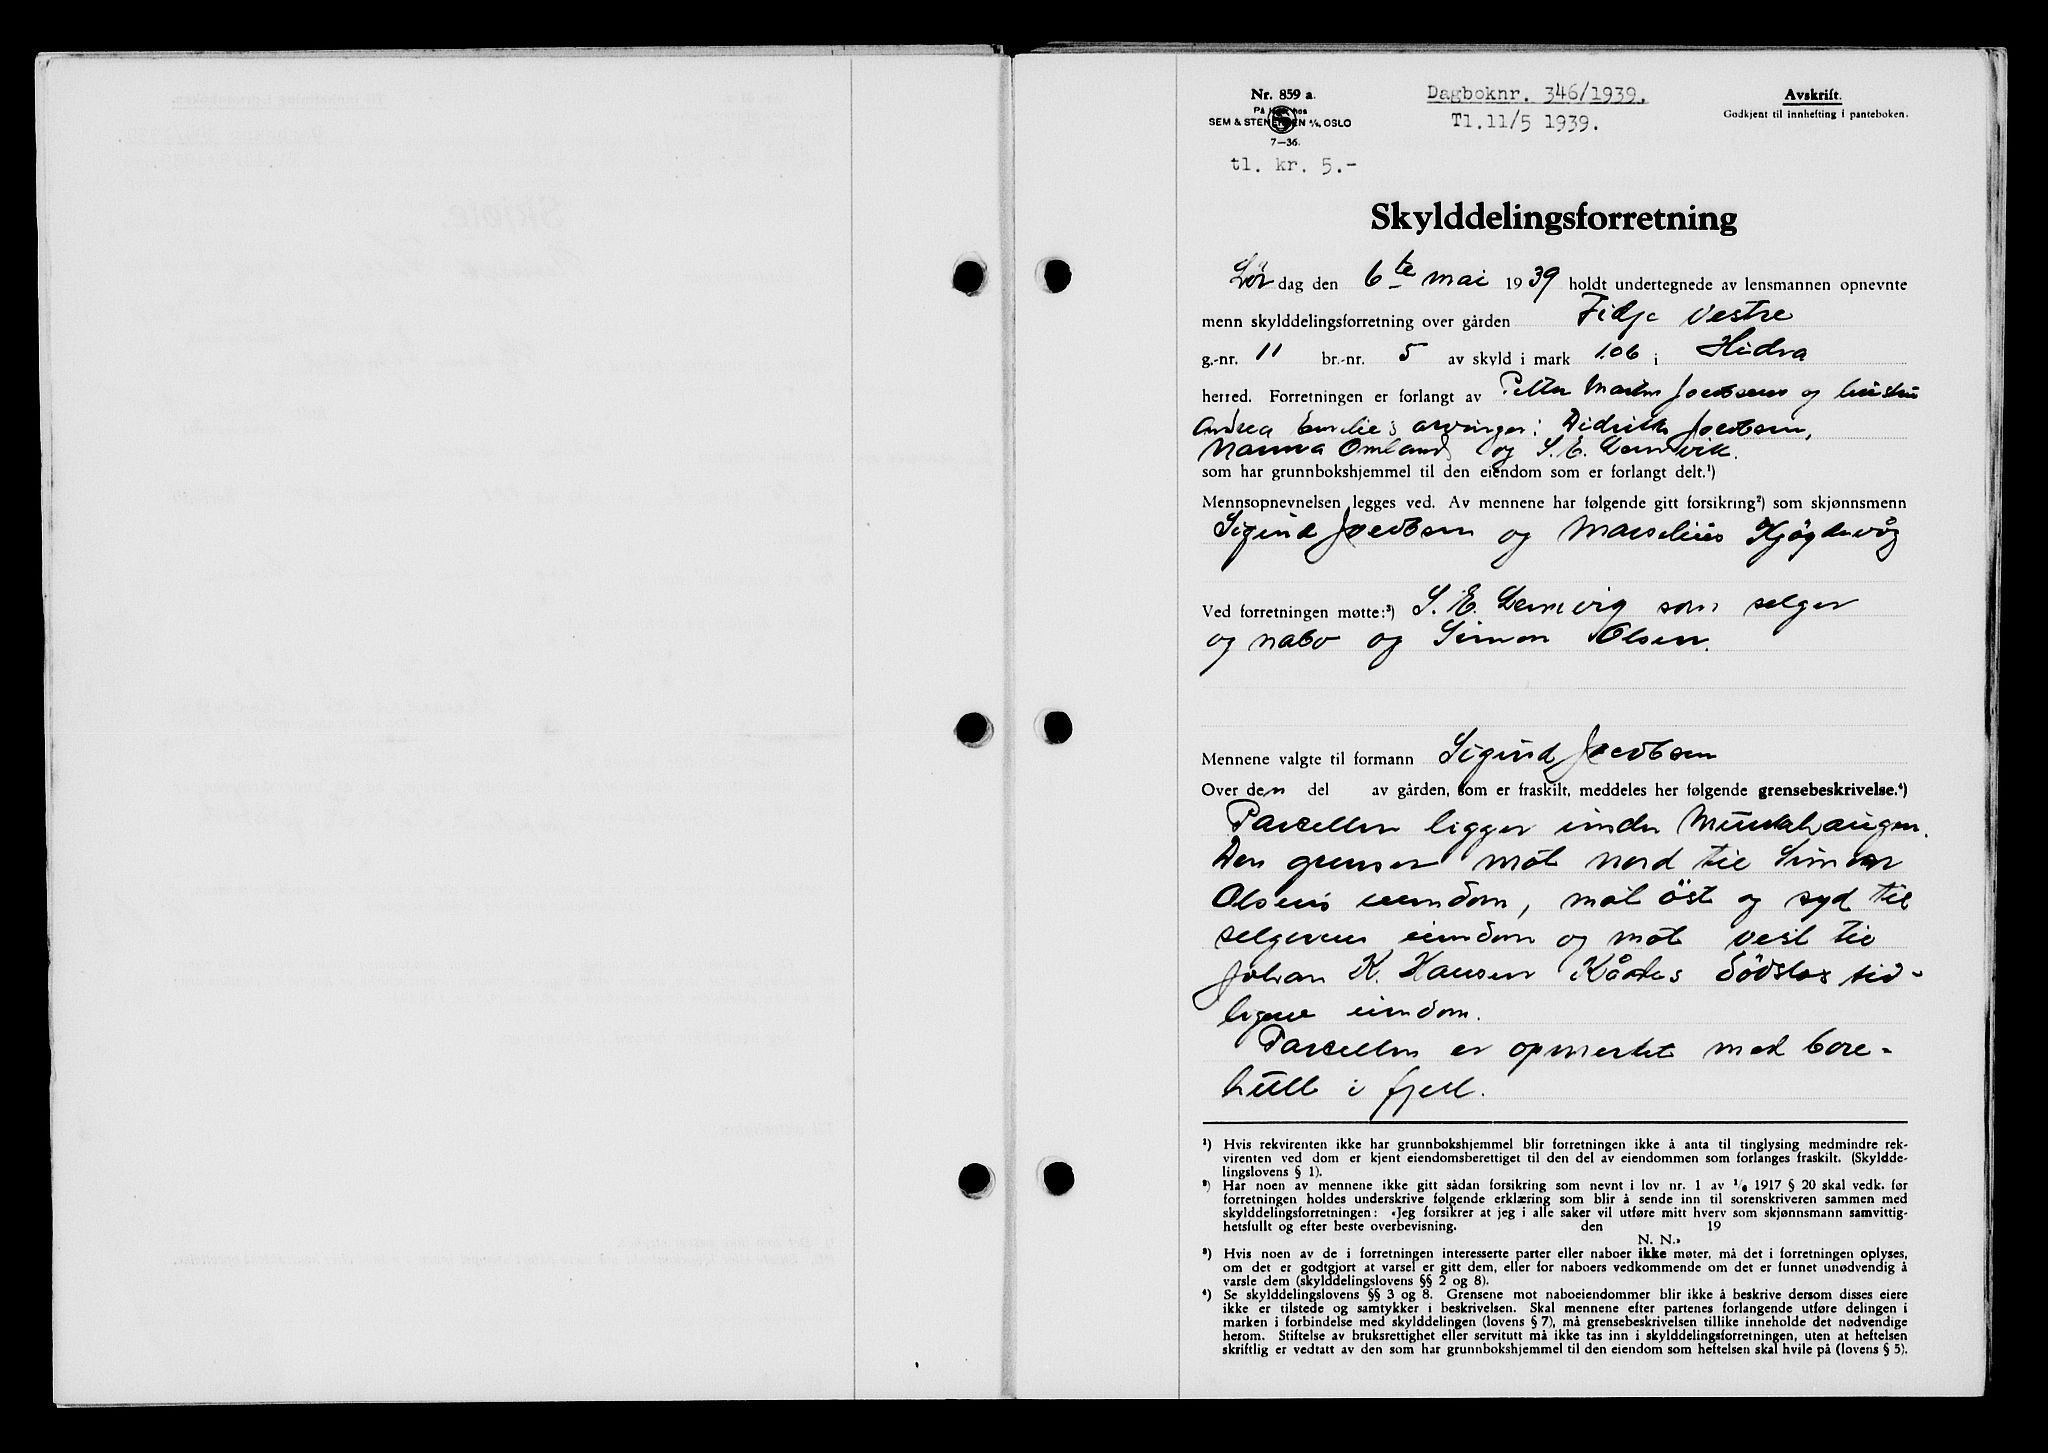 Nr. 859 a.
På lager hos
SEM & STENERSEN A/S, OSLO
7—36.
Dagboknr. 346/1939.
Tl.11/5 1939.
Avskrift.
Godkjent til innhefting i panteboken.
tl. kr. 5.-
Skylddelingsforretning
Lør dag den 6te mai 1939 holdt undertegnede av lensmannen opnevnte
menn skylddelingsforretning over gården Fidje Vestre
g.-nr. 11 br.-nr. 5 av skyld i mark 1.06 i Hidra
herred. Forretningen er forlangt av Petter Martin Jacobsens og hustru
Andrea Emelie's arvinger: Didrik Jacobsen,
Nanna Omland og S. E. Lernvik.
som har grunnbokshjemmel til den eiendom som er forlangt delt.¹)
Mennsopnevnelsen legges ved. Av mennene har følgende gitt forsikring²) som skjønnsmenn
Sigurd Jacobsen og Marselius Kjøgdevåg
Ved forretningen møtte:³) S. E. Lernvig som selger
og nabo og Simon Olsen.
Mennene valgte til formann Sigurd Jacobsen
Over den del av gården, som er fraskilt, meddeles her følgende grensebeskrivelse.⁴)
Parcellen ligger under Munkehaugen.
Den grenser mot nord til Simon
Olsens eiendom, mot øst og syd til
selgerens eiendom og mot vest til
Johan K. Hansen Kådes dødsbos tid-
ligere eiendom.
Parcellen er opmerket med bore-
hull i fjell.
¹) Hvis rekvirenten ikke har grunnbokshjemmel blir forretningen ikke å anta til tinglysing medmindre rek-
virenten ved dom er kjent eiendomsberettiget til den del av eiendommen som forlanges fraskilt. (Skyldde-
lingslovens § 1).
²) Har noen av mennene ikke gitt sådan forsikring som nevnt i lov nr. 1 av 1/6 1917 § 20 skal vedk. før
forretningen holdes underskrive følgende erklæring som blir å sende inn til sorenskriveren sammen med
skylddelingsforretningen: «Jeg forsikrer at jeg i alle saker vil utføre mitt hverv som skjønnsmann samvittig-
hetsfullt og efter beste overbevisning. den 19
N. N.»
³) Hvis noen av de i forretningen interesserte parter eller naboer ikke møter, må det i forretningen oplyses,
om det er godtgjort at varsel er gitt dem, eller for naboers vedkommende om det er funnet unødvendig å
varsle dem (skylddelingslovens §§ 2 og 8).
⁴) Se skylddelingslovens §§ 3 og 8. Grensene mot naboeiendommer blir ikke å beskrive dersom disses eiere
ikke er tilstede og samtykker i beskrivelsen. Skal mennene efter partenes forlangende utføre delingen i
marken i forbindelse med skylddelingen (lovens § 7), må grensebeskrivelsen tillike inneholde det nødvendige
herom. Stiftelse av bruksrettighet eller servitutt må ikke tas inn i skylddelingsforretningen, uten at heftelsen
skriftlig er vedtatt av den som har grunnbokshjemmel til den eiendom som heftelsen skal hvile på (lovens § 5).